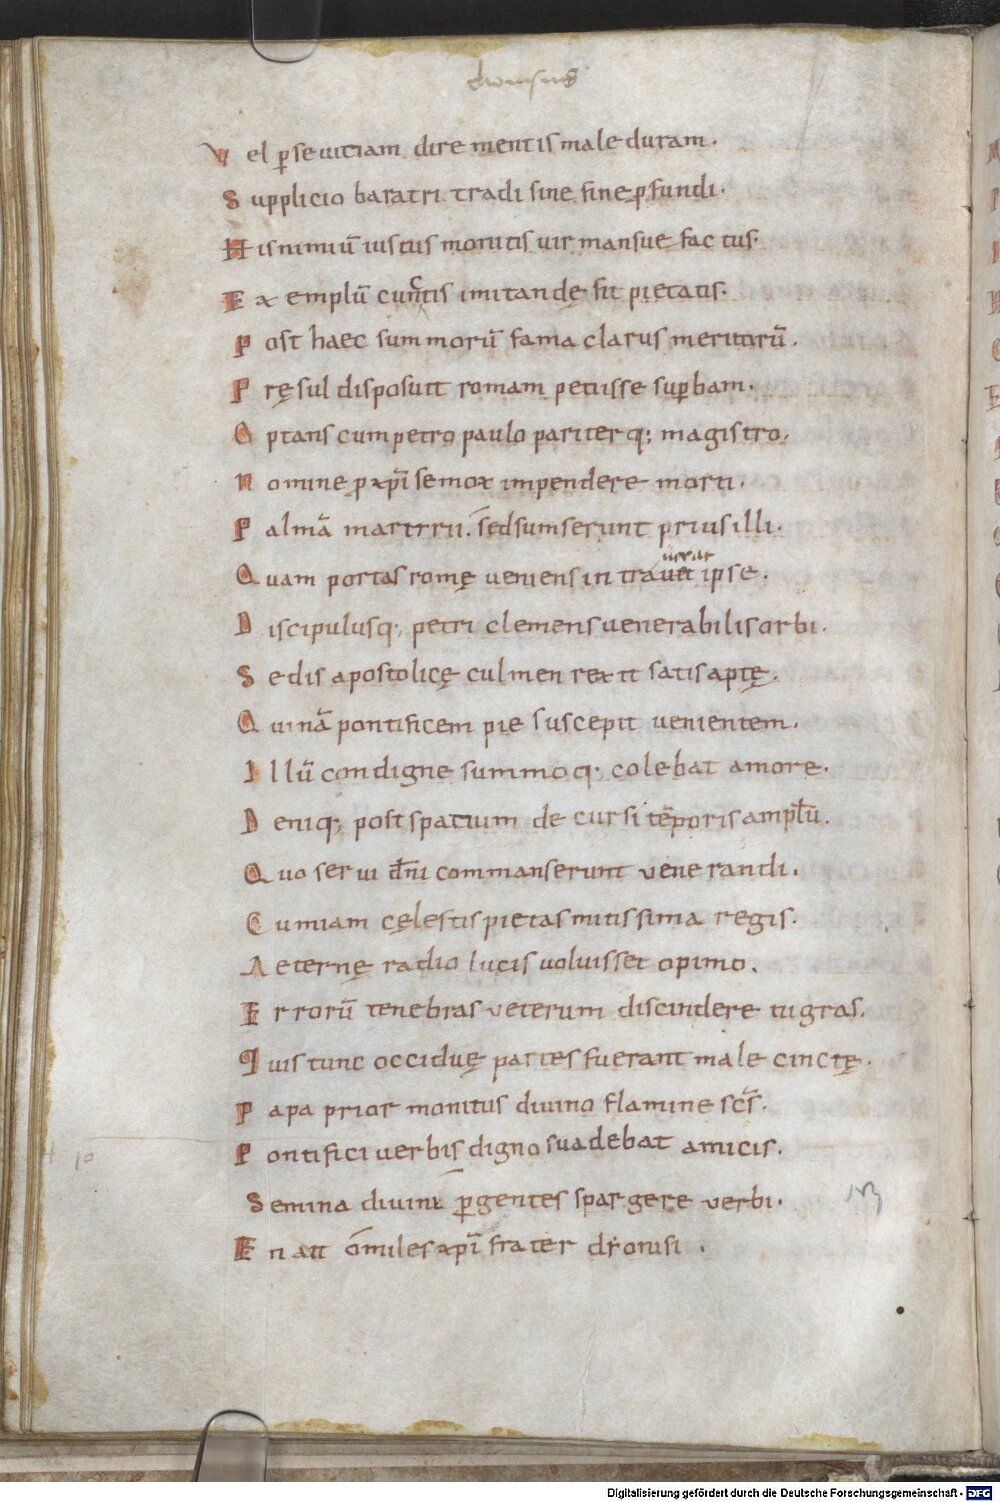 dionisius
Vel ꝑ seuitiam dire mentis male duram.
Supplicio baratri tradi sine fine ꝓfundi.
His nimiū iustus monitis uir mansuefactus.
Exemplū cunctis imitandę fit pietatis.
Post haec summorū fama clarus meritorū.
Pręsul disposuit romam petiisse suꝑbam.
Optans cum petro paulo pariterq; magistro.
Nomine pro xpi semox impendere morti.
Palmā martyrii. sed sumserunt prius illi.
uerat
Quam portas romę veniens intrauit ipse.
Discipulusq; petri clemens uenerabilis orbi.
Sedis apostolicę culmen rexit satis aptę.
Quinā pontificem pie suscepit venientem.
Illū condigne summoq; colebat amore.
Deniq; post spatium decursi tēporis amplū.
Quo serui dn̄i commanserunt venerandi.
Cum iam cęlestis pietas mitissima regis.
Aeternę radio lucis uoluisset opimo.
Errorū tenebras veterum discindere nigras.
Quis tunc occiduę partes fuerant male cinctę.
Papa prior monitus diuino flamine scs̄.
Pontifici uerbis digno suadebat amicis.
Semina diuini ꝑ gentes spargere verbi.
En ait o miles xpi frater dyonisi.
Digitalisierung gefördert durch die Deutsche Forschungsgemeinschaft - DFG